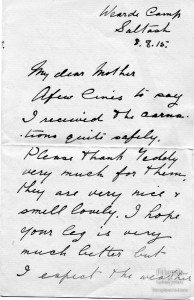 Wearde Camp
Saltash
8.8.15.
My dear Mother
A few lines to say
I received the carna-
tions quite safely.
Please thank Teddy
very much for them,
they are very nice &
smell lovely. I hope
your leg is very
much better but
I expect the weather